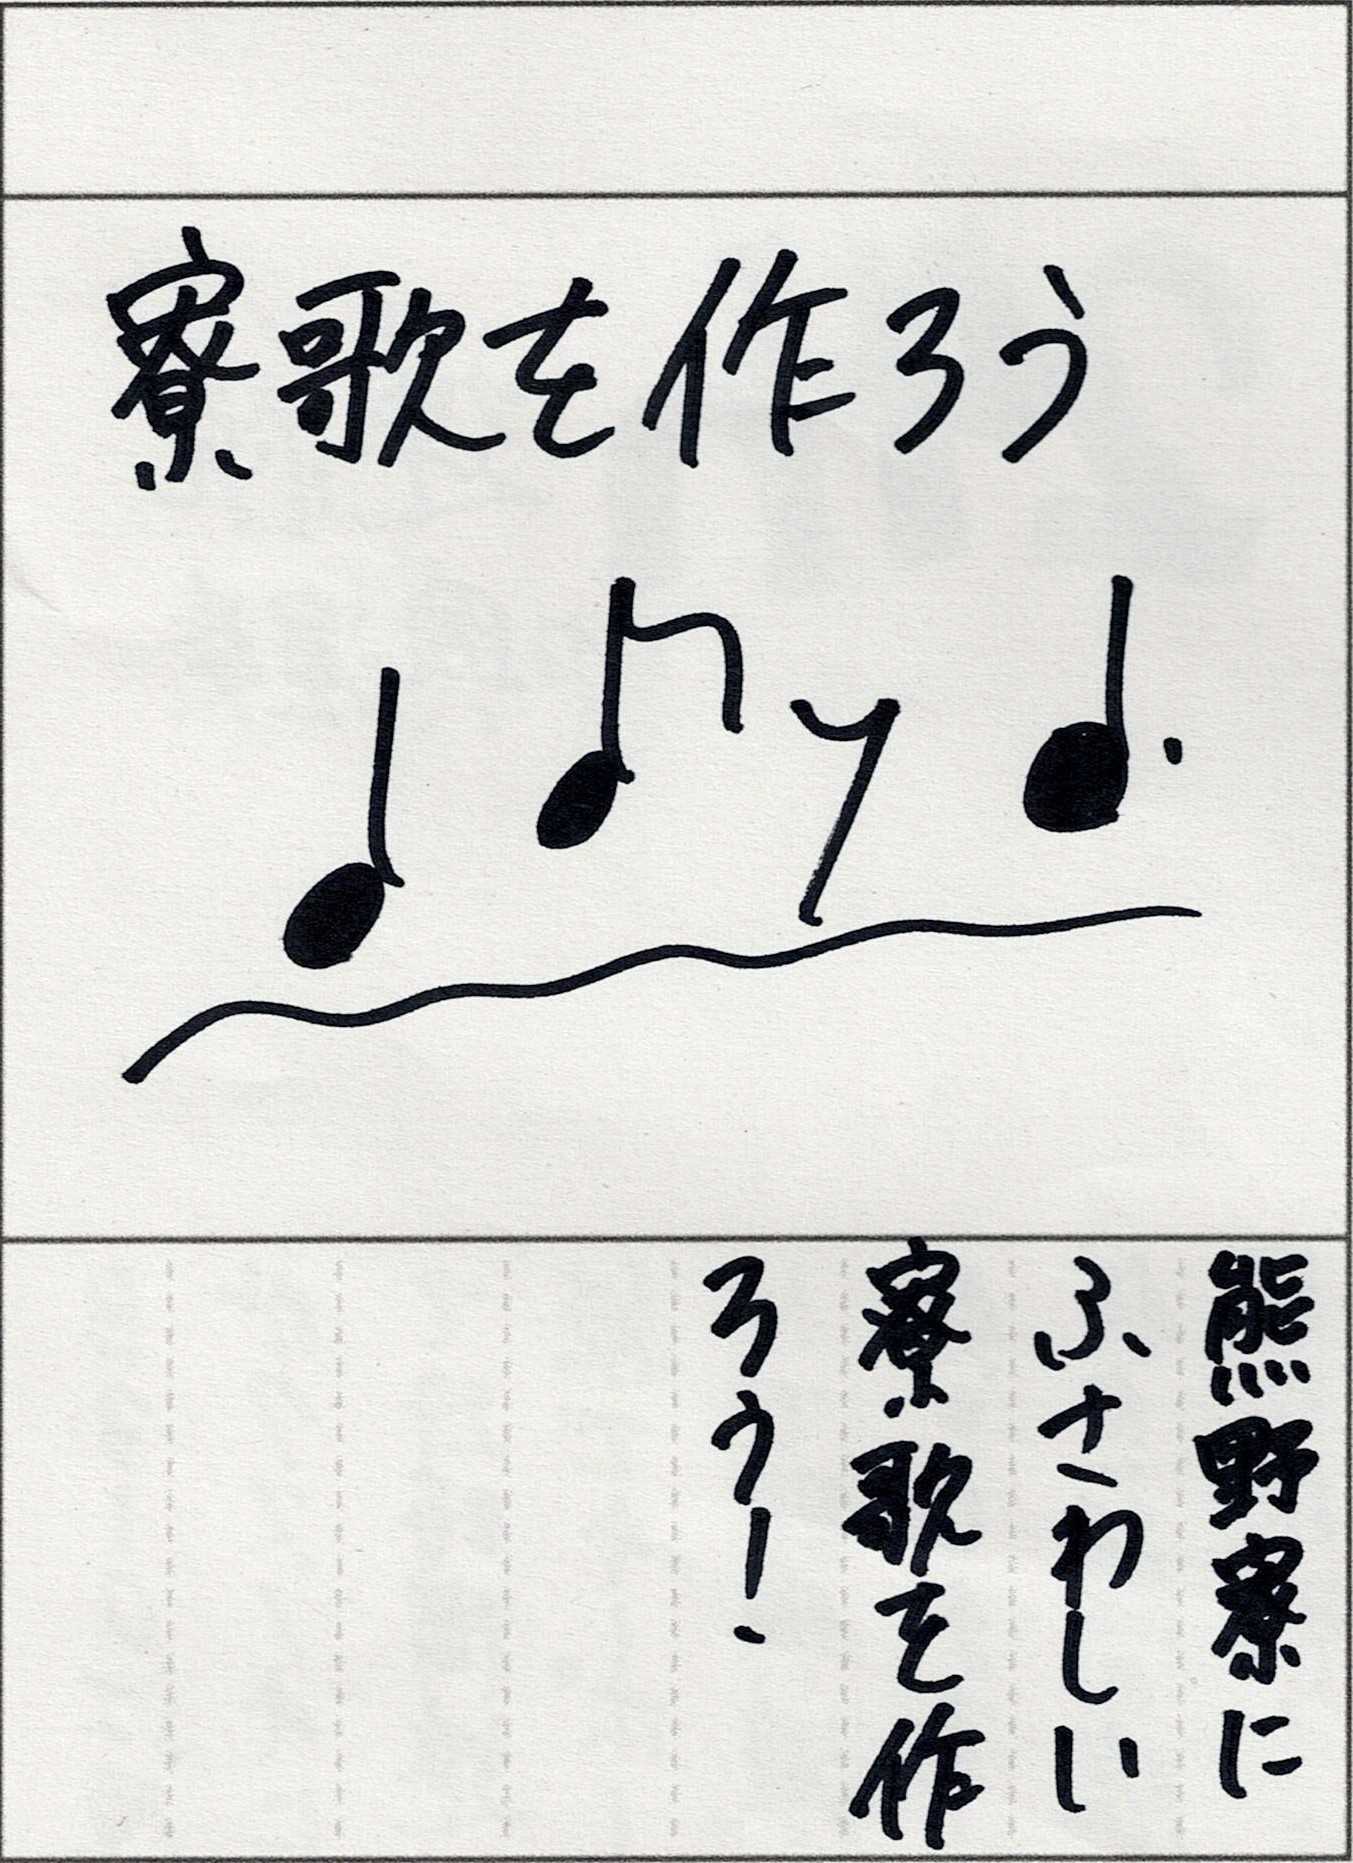 寮歌を作ろう
熊野寮に
ふさわしい
寮歌を作
ろう!